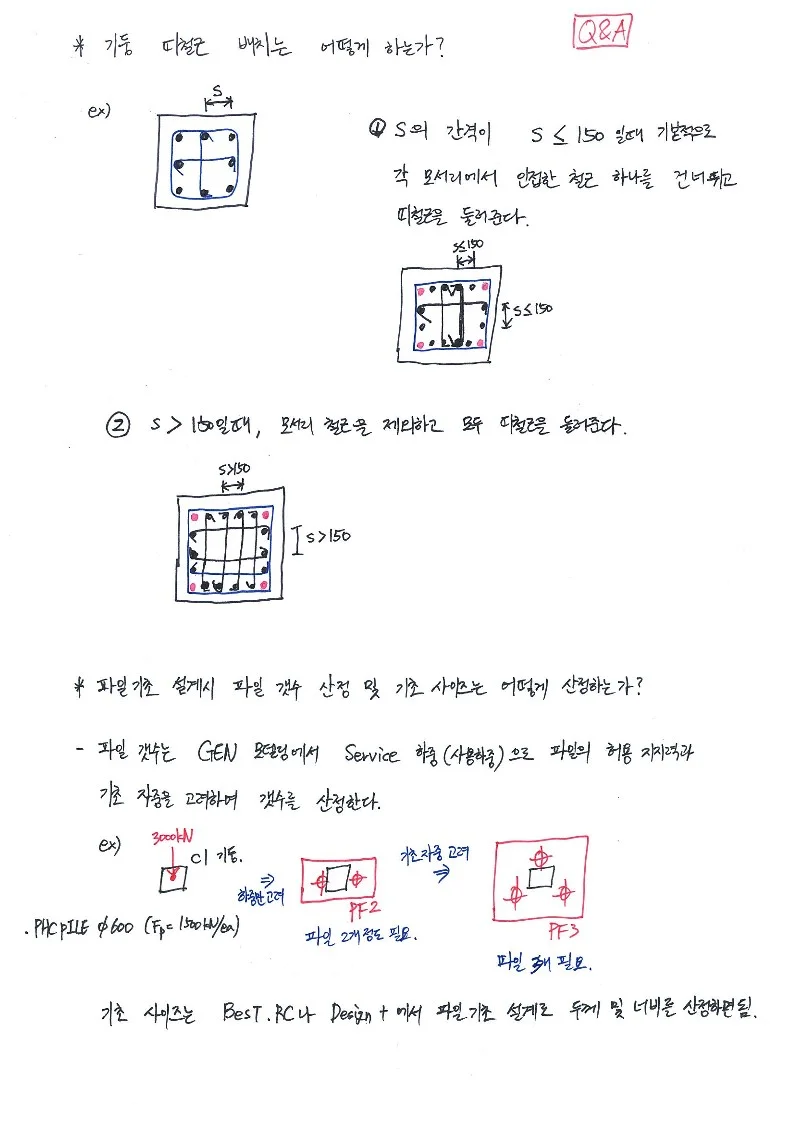 Q&A
* 기둥 띠철근 배치는 어떻게 하는가?
ex)
S
① S의 간격이 S ≤ 150 일때 기본적으로
각 모서리에서 인접한 철근 하나를 건너뛰고
띠철근을 둘러준다.
S≤150
S≤150
② S > 150일때, 모서리 철근을 제외하고 모두 띠철근을 둘러준다.
S>150
S>150
* 파일기초 설계시 파일 갯수 산정 및 기초 사이즈는 어떻게 산정하는가?
- 파일 갯수는 GEN 모델링에서 Service 하중(사용하중)으로 파일의 허용지지력과
기초 자중을 고려하여 갯수를 산정한다.
ex)
3000kN
C1 기둥.
⇒
하중만 고려
PF2
파일 2개정도 필요.
기초자중 고려
⇒
PF3
파일 3개 필요.
. PHC PILE φ600 (Fp=1500kN/ea)
기초 사이즈는 BesT.RC나 Design+에서 파일기초 설계로 두께 및 너비를 산정하면됨.